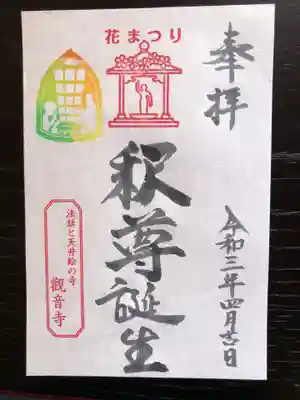 奉拝
花まつり
釈尊誕生
令和三年四月吉日
法話と天井絵の寺
觀音寺